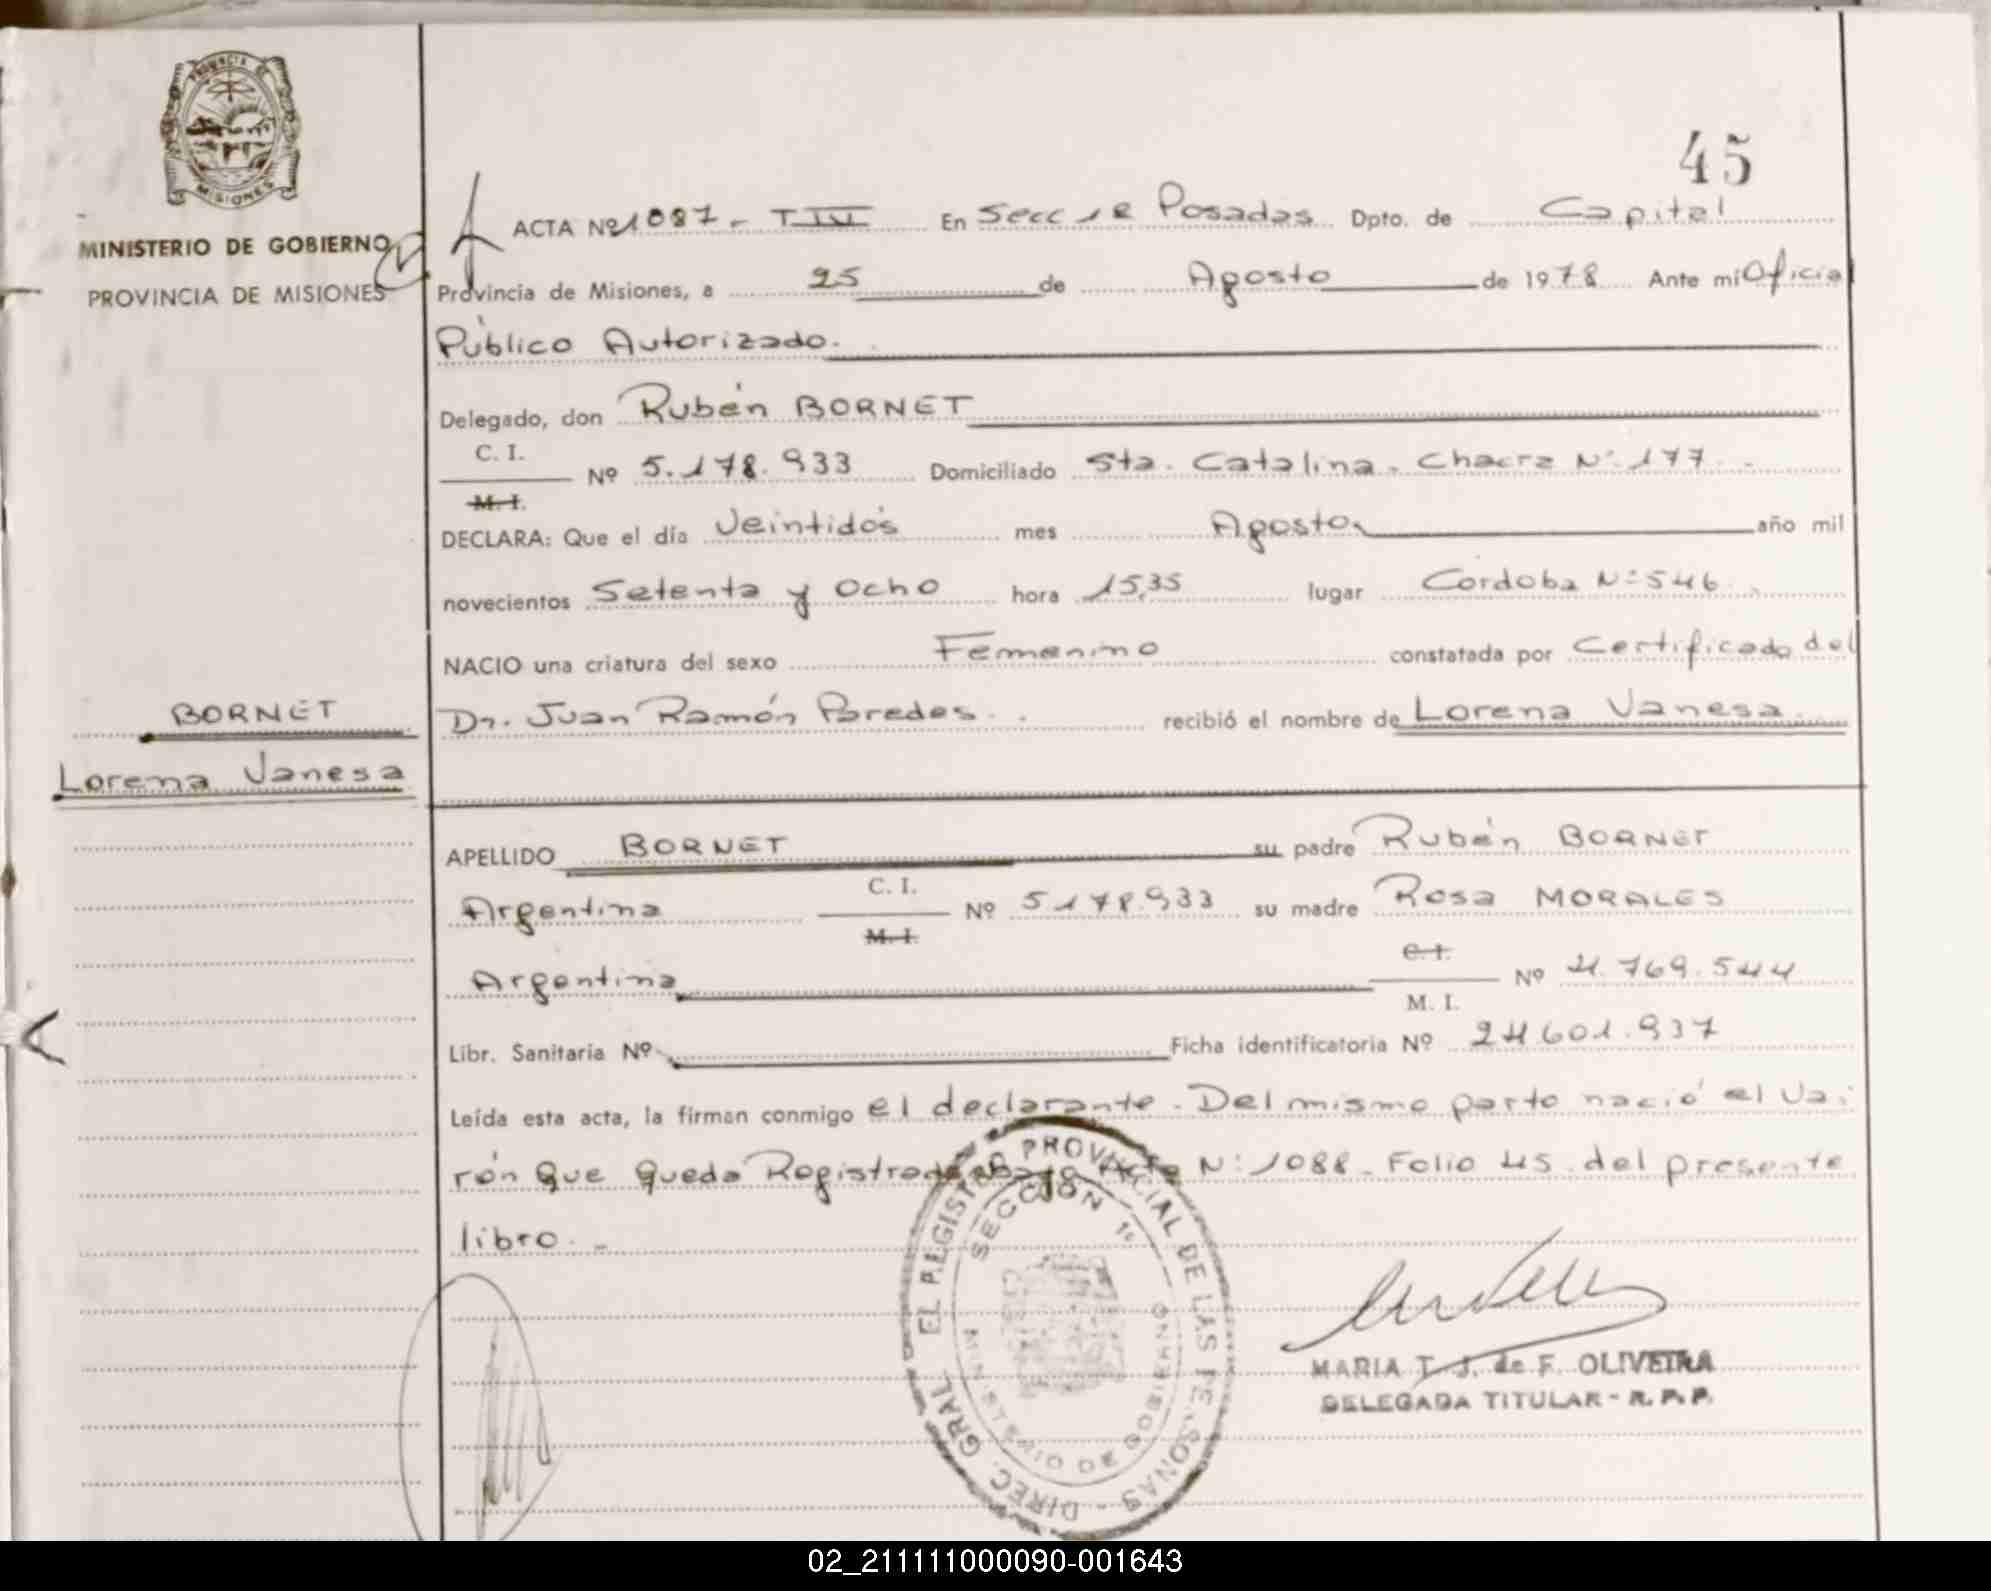 PROVINCIA DE
MISIONES
MINISTERIO DE GOBIERNO
PROVINCIA DE MISIONES
45
ACTA Nº 1087 - T IV En Secc 1ª Posadas Dpto. de Capital
Provincia de Misiones, a 25 de Agosto de 1978 Ante mi Oficial
Público Autorizado.
Delegado, don Rubén BORNET
C. I.
Nº 5.178.933 Domiciliado Sta. Catalina - Chacra Nº 177 -
M. I.
DECLARA: Que el día Veintidós mes Agosto año mil
novecientos Setenta y Ocho hora 15,35 lugar Córdoba Nº 546
NACIO una criatura del sexo Femenino constatada por Certificado del
Dr. Juan Ramón Paredes. recibió el nombre de Lorena Vanesa
BORNET
Lorena Vanesa
APELLIDO BORNET su padre Rubén BORNET
C. I.
Argentina Nº 5178.933 su madre Rosa MORALES
M. I.
C. I.
Argentina Nº 4.769.544
M. I.
Libr. Sanitaria Nº Ficha identificatoria Nº 24601.937
Leída esta acta, la firman conmigo el declarante. Del mismo parto nació el Va-
rón que queda Registrado bajo Acta Nº 1088 - Folio 45 del presente
libro. -
DIREC. GRAL. EL REGISTRO PROVINCIAL DE LAS PERSONAS -
SECCION 1ª
MINISTERIO DE GOBIERNO
MARIA T. J. de F. OLIVEIRA
DELEGADA TITULAR - R. P. P.
02_211111000090-001643